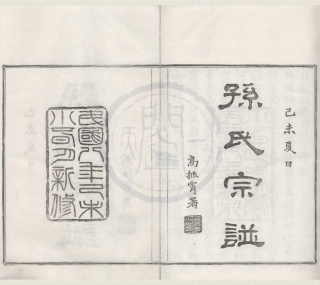 己未夏日
孫氏宗譜
高振霄署
民國八年己未
小春月新修